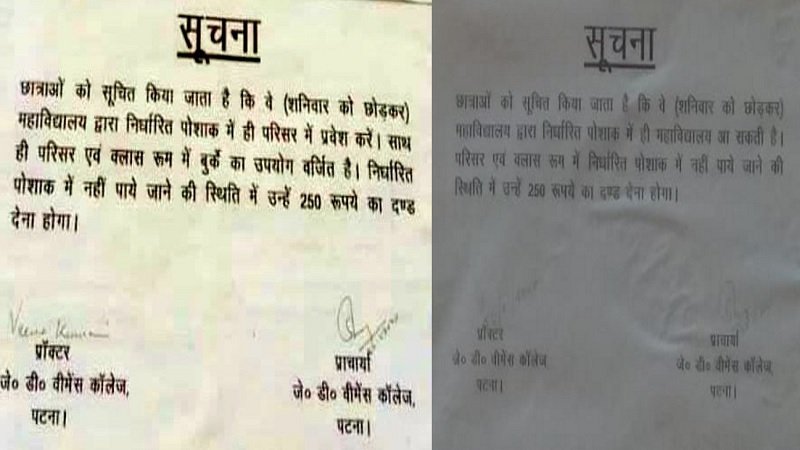 सूचना
छात्राओं को सूचित किया जाता है कि वे (शनिवार को छोड़कर)
महाविद्यालय द्वारा निर्धारित पोशाक में ही परिसर में प्रवेश करें। साथ
ही परिसर एवं क्लास रूम में बुर्के का उपयोग वर्जित है। निर्धारित
पोशाक में नहीं पाये जाने की स्थिति में उन्हें 250 रूपये का दण्ड
देना होगा।
Veena Kumari
प्रॉक्टर
जे० डी० वीमेंस कॉलेज,
पटना।
प्राचार्या
जे० डी० वीमेंस कॉलेज,
पटना।
सूचना
छात्राओं को सूचित किया जाता है कि वे (शनिवार को छोड़कर)
महाविद्यालय द्वारा निर्धारित पोशाक में ही महाविद्यालय आ सकती है।
परिसर एवं क्लास रूम में निर्धारित पोशाक में नहीं पाये जाने की
स्थिति में उन्हें 250 रूपये का दण्ड देना होगा।
प्रॉक्टर
जे० डी० वीमेंस कॉलेज,
पटना।
प्राचार्या
जे० डी० वीमेंस कॉलेज,
पटना।